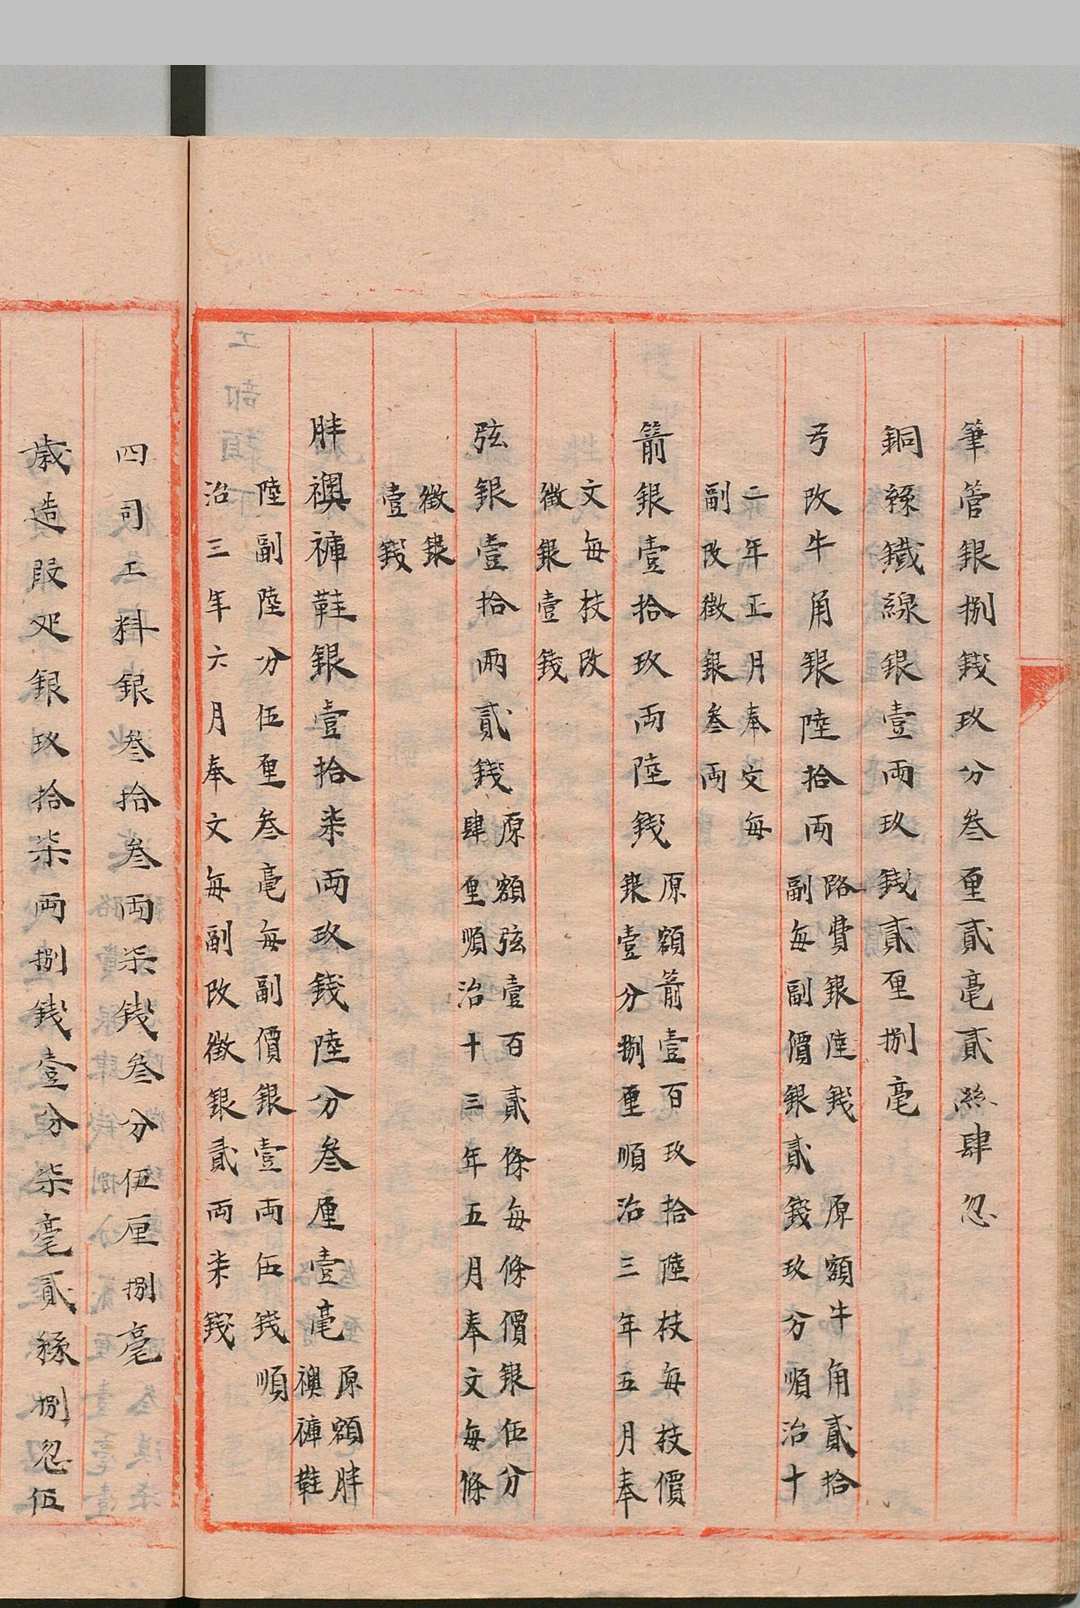 筆管銀捌錢玖分叁厘貳毫貳絲肆忽
銅絲鐵線銀壹兩玖錢貳厘捌毫
弓改牛角銀陸拾両
路費銀陸錢 原額牛角貳拾
副每副價銀貳錢玖分順治十
二年正月奉文每
副改徵銀叁両
箭銀壹拾玖両陸錢
原額箭壹百玖拾陸枝每枝價
銀壹分捌厘順治三年五月奉
文每枝改
徵銀壹錢
弦銀壹拾兩貳錢
原額弦壹百貳條每條價銀伍分
肆厘順治十三年五月奉文每條
徵銀
壹錢
胖襖褲鞋銀壹拾柒両玖錢陸分叁厘壹毫
原額胖
襖褲鞋
陸副陸分伍厘叁毫每副價銀壹両伍錢順
治三年六月奉文每副改徵銀貳両柒錢
四司工料銀叁拾叁両柒錢叁分伍厘捌毫
歲造叚疋銀玖拾柒両捌錢壹分柒毫貳絲捌忽伍